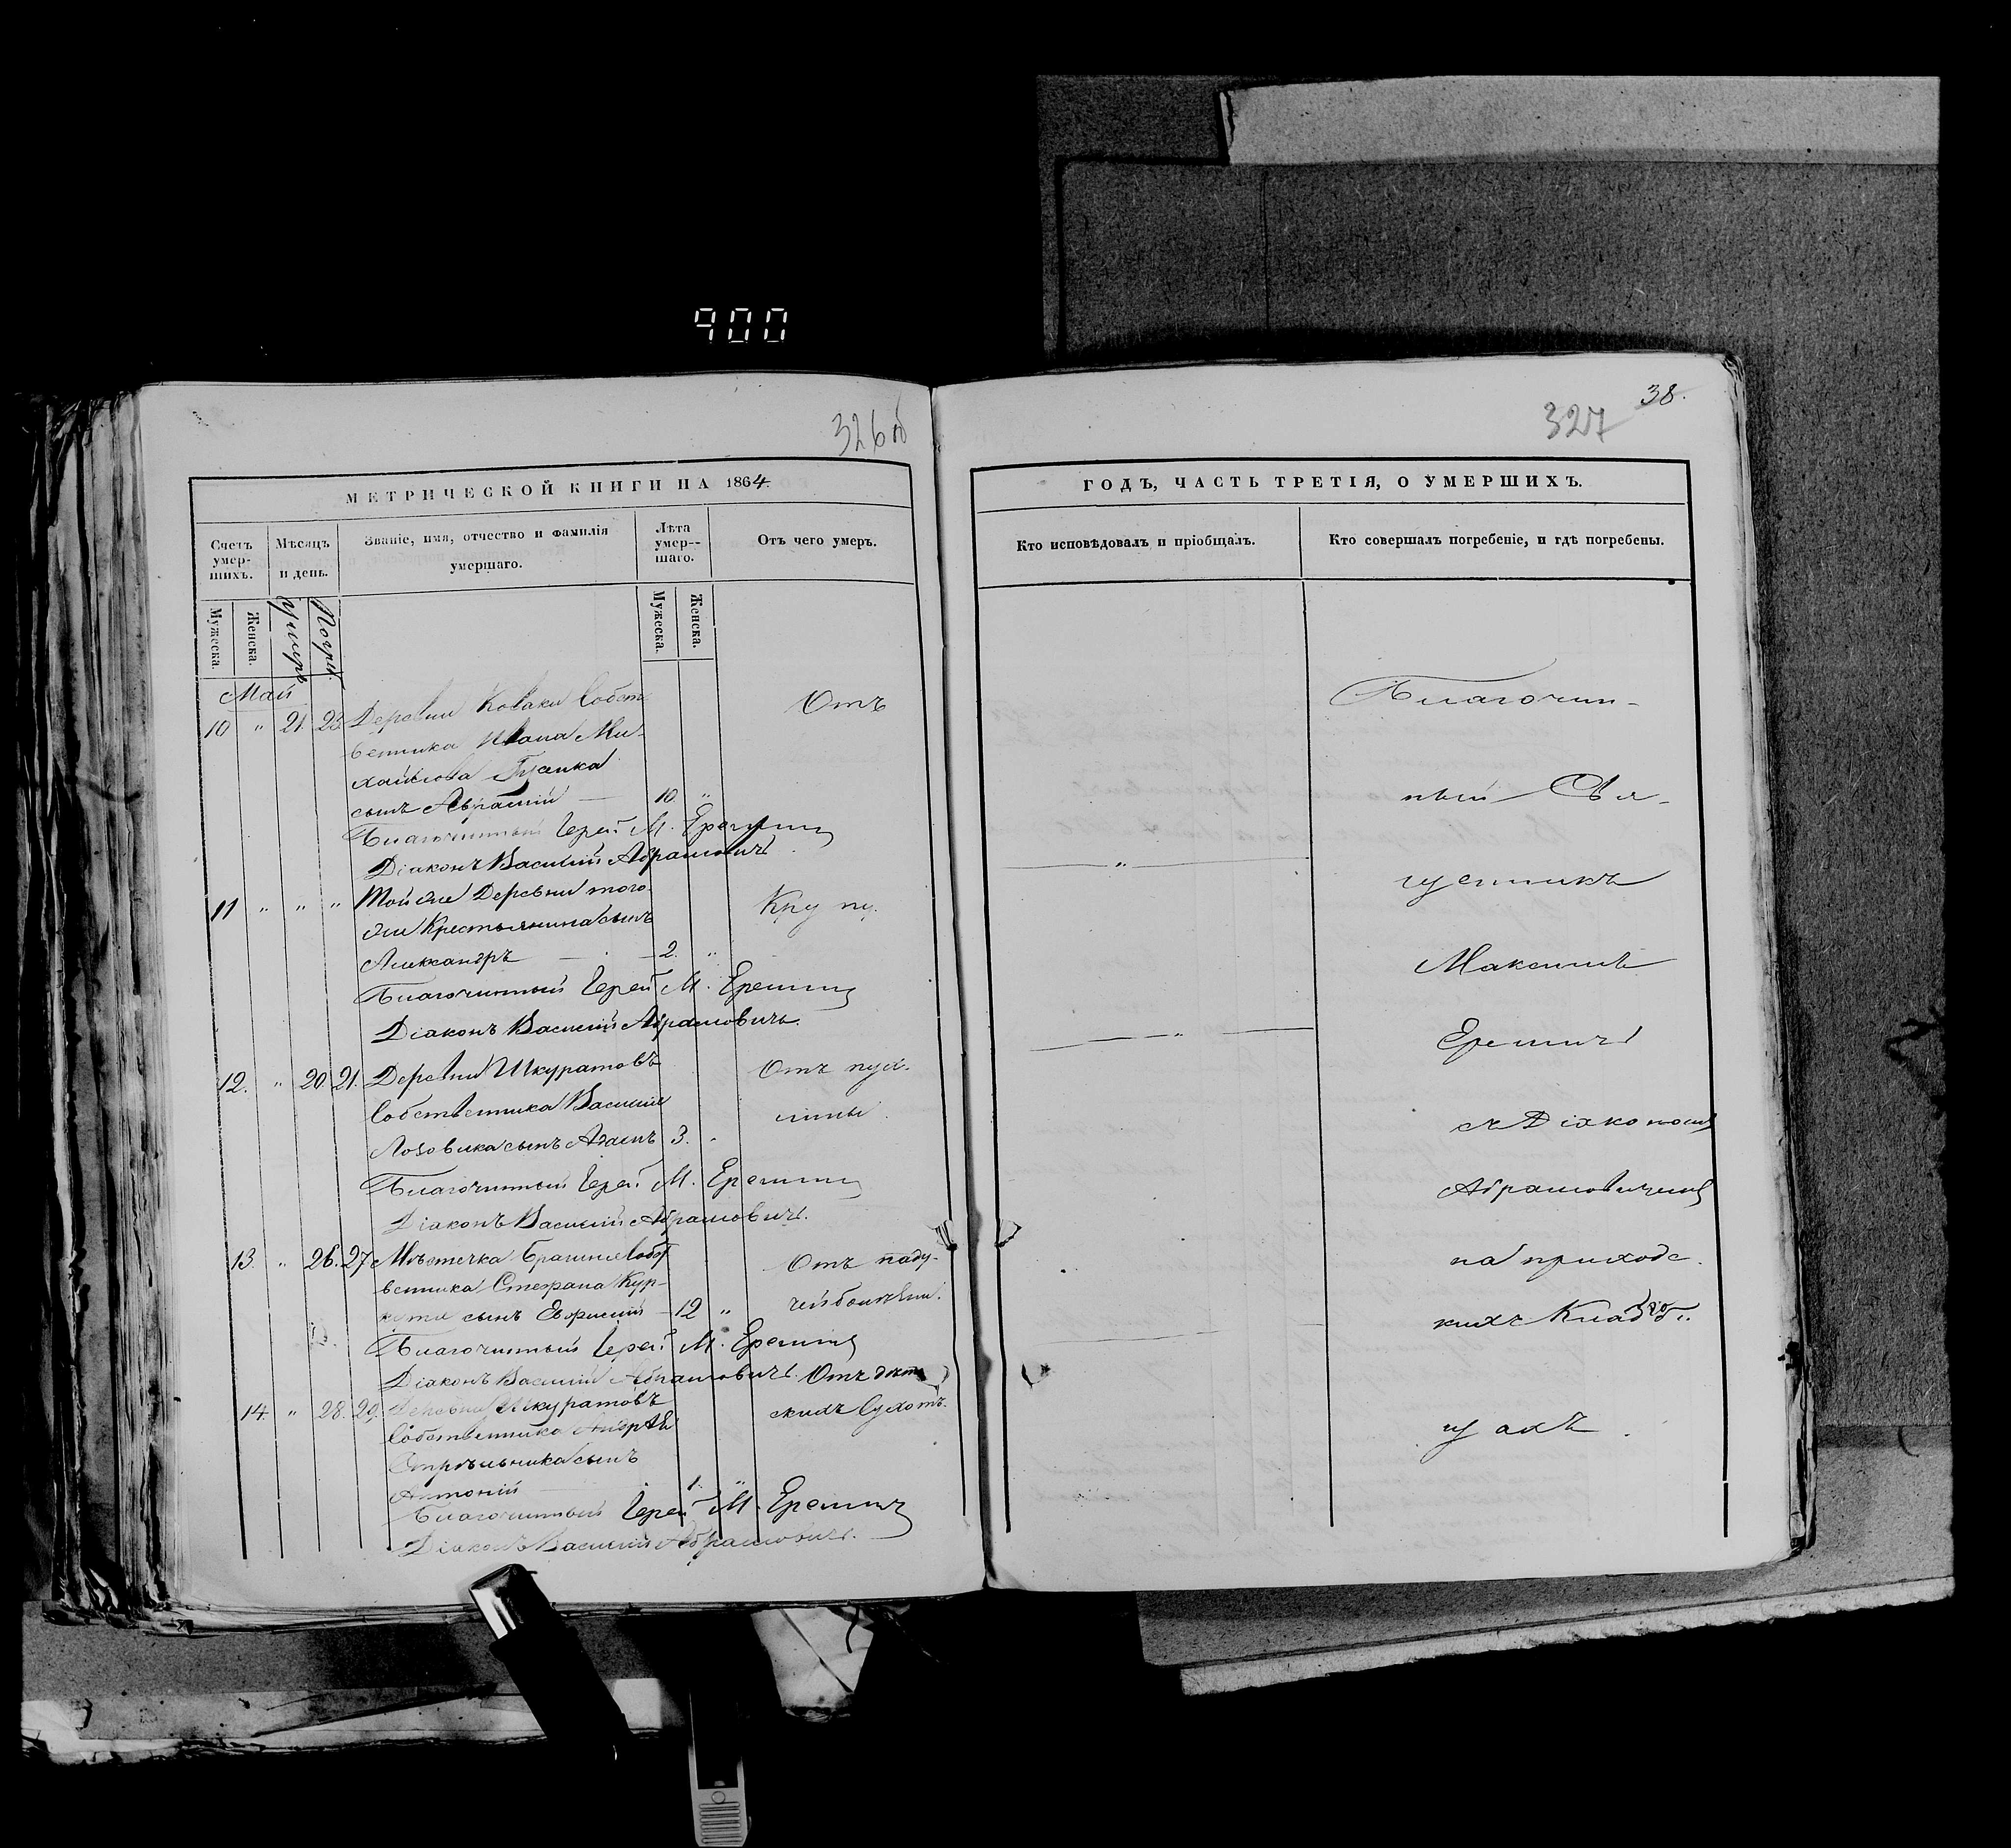 900
326об
МЕТРИЧЕСКОЙ КНИГИ НА 1864
Счетъ умер-шихъ.
Мѣсяцъ и день.
Званіе, имя, отчество и фамилія умершаго.
Лѣта умер--шаго.
Отъ чего умеръ.
Мужеска.
Женска.
Умеръ
Погр.
Мужеска.
Женска.
Май
10 " 21. 23. Деревни Коваки Собст- Отъ
венника Ивана Ми-
хайлова
сынъ 10. "
Благочинный Іерей М. Еремич
Діаконъ Василій Абрамовичъ
11 " " " Той же Деревни того- Крупу.
же Крестьянина сынъ
Александръ 2. "
Благочинный Іерей М. Еремич
Діаконъ Василій Абрамовичъ.
12. " 20. 21. Деревни Шкуратовъ Отъ пух-
Собственника Василія лины.
Лозовика сынъ Адамъ 3. "
Благочинный Іерей М. Еремич
Діаконъ Василій Абрамовичъ.
13. " 26. 27 Мѣстечка Собст Отъ паду-
венника Стефана Кур- чей болѣзни.
сынъ 12 "
Благочинный Іерей М. Еремич
Діаконъ Василій Абрамовичъ. Отъ дѣт
14. " 28. 29. Деревни Шкуратовъ скихъ сухотъ.
Собственника Андрея
Стрѣльника сынъ
Антоній 1. "
Благочинный Іерей М. Еремич
Діаконъ Василій Абрамовичъ.
38.
327
ГОДЪ, ЧАСТЬ ТРЕТІЯ, О УМЕРШИХЪ.
Кто исповѣдовалъ и пріобщалъ.
Кто совершалъ погребеніе, и гдѣ погребены.
Благочин-
ный Свя-
щенникъ
Максимъ
Еремичъ
съ Діакономъ
Абрамовичемъ
на приходс-
кихъ Кладби
щахъ.